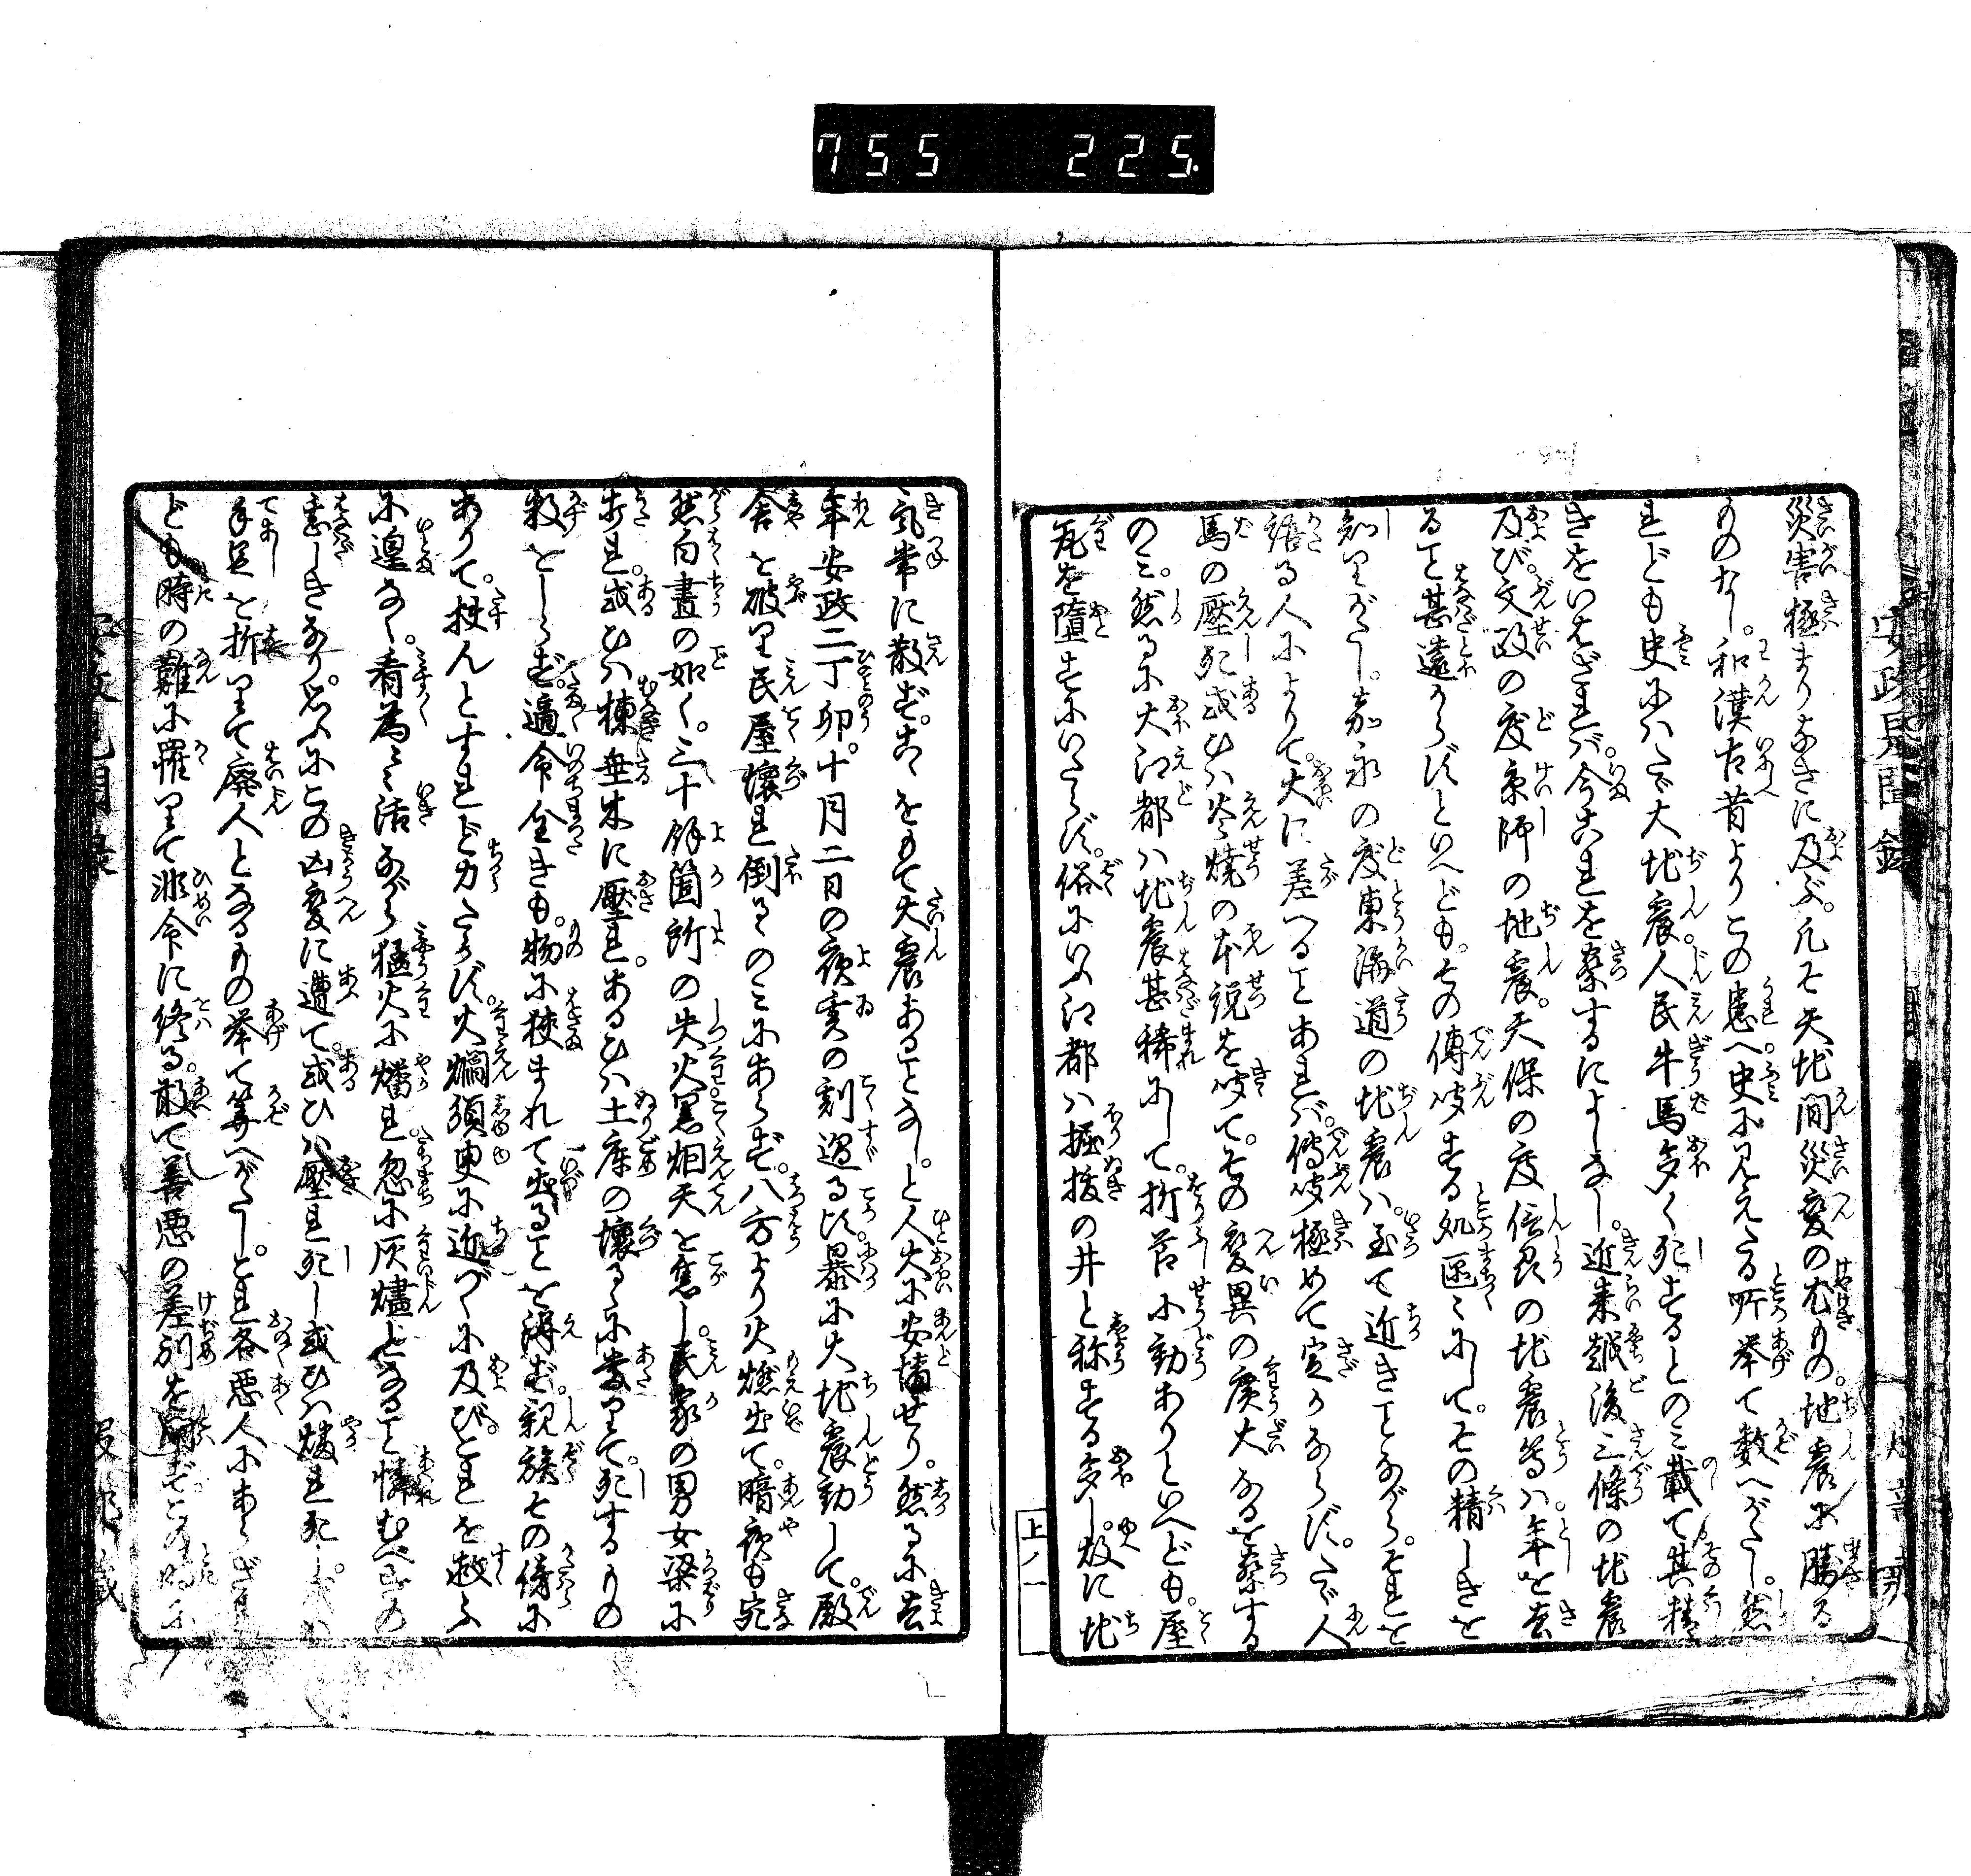 755 225.
災害極まりなきに及ぶ。凡そ天地間災変の尤もの。地震に勝る
ものなし。和漢古昔よりこの患へ。史に見えたる所挙て数へがたし。然
れども史にハたゞ大地震。人民牛馬多く死するとのミ載て其精
きをいはざれバ。今これを察するによしなし。近来越後三條の地震
及び。文政の度京師の地震。天保の度信州の地震等ハ。年を去
ること甚遠からずといへども。その傳聞する処区々にして。その精しきを
知りがたし。嘉永の度東海道の地震ハ。至て近きことながら。それを
語る人によりて。大に差へることあれバ。傳聞極めて定かならず。たゞ人
馬の壓死或ひハ火焼の本説を聞て。その変異の廣大なるを察する
のミ。然るに大江都ハ地震甚稀にして。折節小動ありといへども。屋
瓦を墮すにいたらず。俗にいふ江都ハ掘抜の井と称する多し。故に地
上ノ一
気常に散ず。こゝをもて大震あることなし。と人大に安堵せり。然るに去
年安政二丁卯。十月二日の夜亥の刻過る比。暴に大地震動して。殿
舎を破り民屋壊れ倒るのミにあらず。八方より火燃出て。暗夜も宛
然白晝の如く。三十餘箇所の失火。黒烟天を焦し。民家の男女梁に
拉れ。或ひハ棟垂木に壓れ。あるひハ土庫の壊るゝに當りて。死するもの
数をしらず。適命全きも。物に狭まれて出ることを得ず。親族その傍に
ありて。扶んとすれど力たらず。火焔須臾に近づくに及び。これを救ふ
に遑なく。看為々々活ながら猛火に燔れ。忽に灰燼となること憐むべきの
甚しきなり。思ふにこの凶変に遭て。或ひハ壓れ死し或ひハ燔れ死し。或ハ
手足を折りて廃人となるもの挙て算へがたし。これ各悪人にあらざれ
ども時の難に罹りて非命に終る。敢て善悪の差別を
安政見聞録